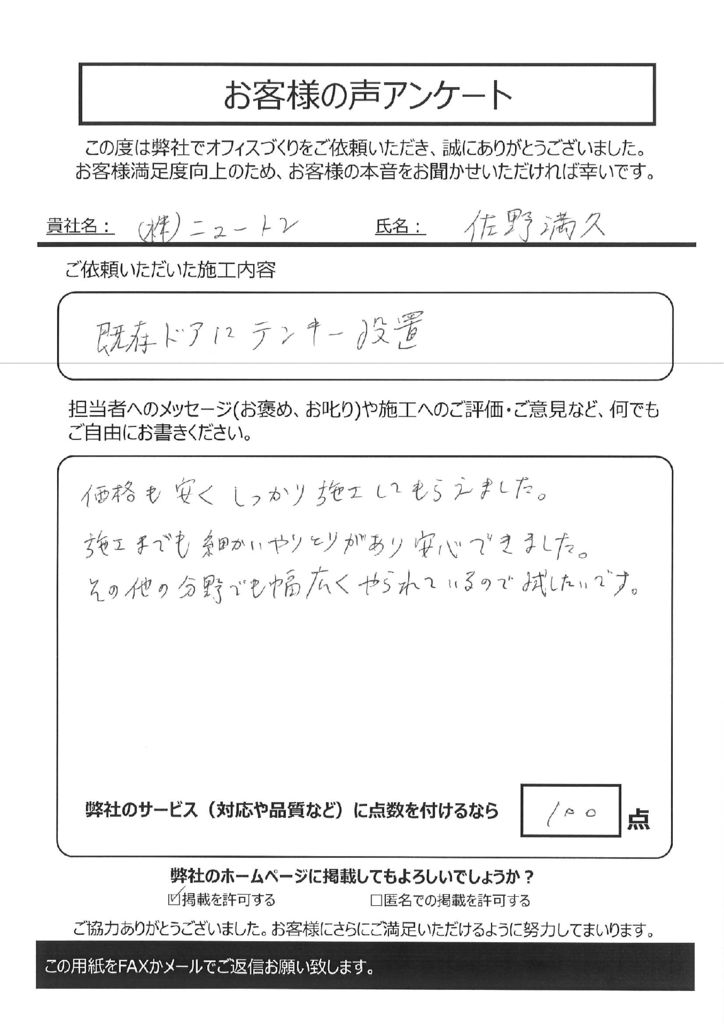 お客様の声アンケート
この度は弊社でオフィスづくりをご依頼いただき、誠にありがとうございました。
お客様満足度向上のため、お客様の本音をお聞かせいただければ幸いです。
貴社名： (株)ニュートン 氏名： 佐野満久
ご依頼いただいた施工内容
既存ドアにテンキー設置
担当者へのメッセージ(お褒め、お叱り)や施工へのご評価・ご意見など、何でも
ご自由にお書きください。
価格も安くしっかり施工してもらえました。
施工までも細かいやりとりがあり安心できました。
その他の分野でも幅広くやられているので試したいです。
弊社のサービス（対応や品質など）に点数を付けるなら 100 点
弊社のホームページに掲載してもよろしいでしょうか？
☑掲載を許可する □匿名での掲載を許可する
ご協力ありがとうございました。お客様にさらにご満足いただけるように努力してまいります。
この用紙をFAXかメールでご返信お願い致します。